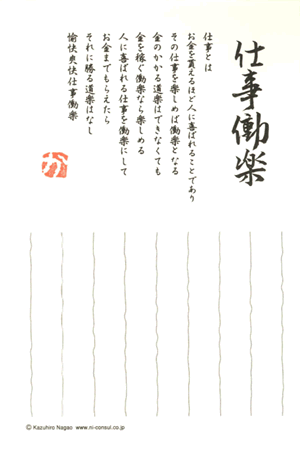 仕事働楽
仕事とは
お金を貰えるほど人に喜ばれることであり
その仕事を楽しめば働楽となる
金のかかる道楽はできなくても
金を稼ぐ働楽なら楽しめる
人に喜ばれる仕事を働楽にして
お金までもらえたら
それに勝る道楽はなし
愉快爽快仕事働楽
か
© Kazuhiro Nagao www.ni-consul.co.jp